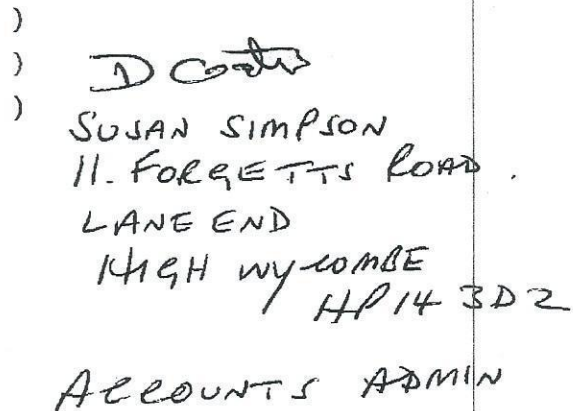 )
)
) D Coates
SUSAN SIMPSON
11. FORGETTS ROAD.
LANE END
HIGH WYCOMBE
HP14 3DZ
ACCOUNTS ADMIN